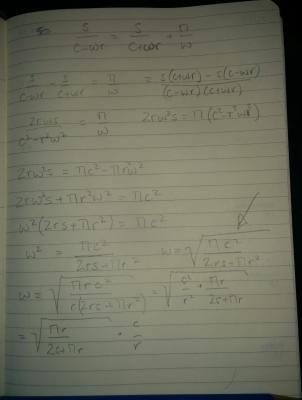 so s/(c-wr) = s/(c+wr) + π/w
s/(c-wr) - s/(c+wr) = π/w = (s(c+wr) - s(c-wr))/((c-wr)(c+wr))
2rws/(c²-r²w²) = π/w 2rw²s = π(c²-r²w²)
2rw²s = πc²-πr²w²
2rw²s+πr²w² = πc²
w²(2rs+πr²) = πc²
w² = πc²/(2rs+πr²) w = √(πc²/(2rs+πr²))
w = √(πrc²/(r(2rs+πr²))) = √(c²/r² · πr/(2s+πr))
= √(πr/(2s+πr)) · c/r